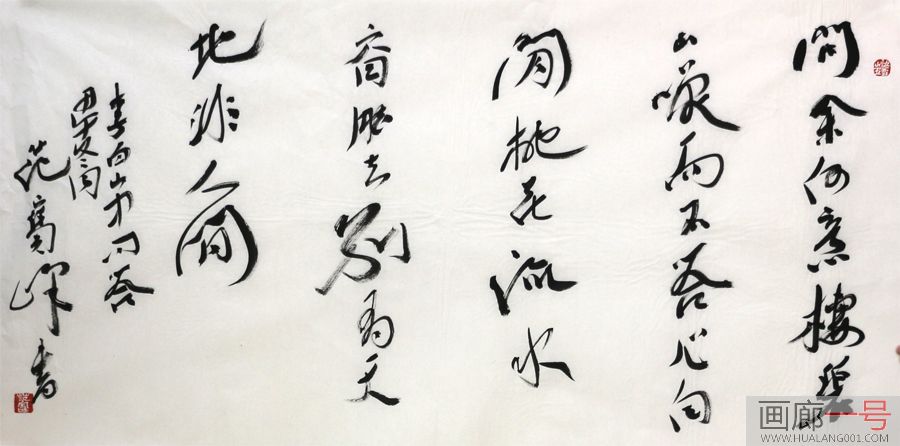 問余何意棲碧
山咲而不答心自
閑桃花流水
窅然去別有天
地非人間
李白山中问答
甲午冬月
范峰书
画廊一号
WWW.HUALANG001.COM